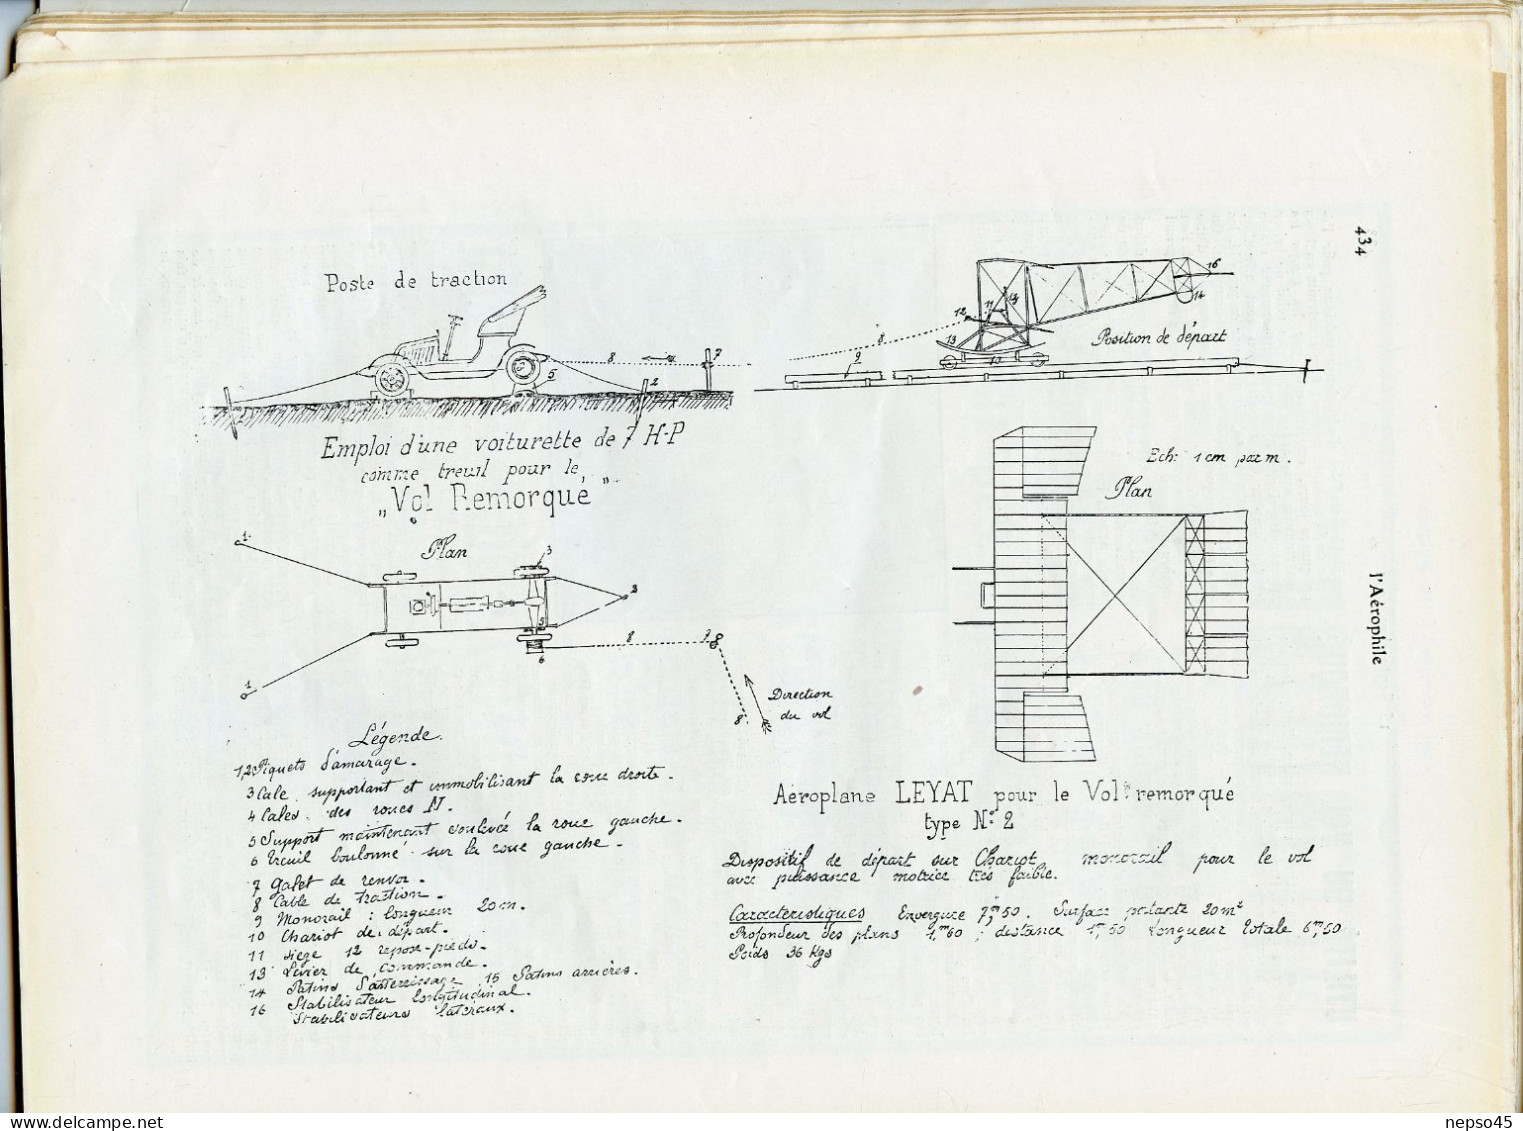 434
l'Aérophile
Poste de traction
8
7
5
2
Emploi d'une voiturette de 7 H-P
comme treuil pour le
„Vol Remorqué"
Plan
1
3
2
5
6
8
7
1
8
Direction
du vol
Légende.
1,2 Piquets d'amarage.
3 Cale supportant et immobilisant la roue droite.
4 Cales des roues N.
5 Support maintenant soulevée la roue gauche.
6 Treuil boulonné sur la roue gauche.
7 Galet de renvoi.
8 Cable de traction.
9 Monorail : longueur 20m.
10 Chariot de départ.
11 siège 12 repose-pieds.
13 Levier de commande.
14 Patins d'atterrissage 15 Patins arrières.
16 Stabilisateur longitudinal.
Stabilisateurs latéraux.
16
14
11
12
13
10
8
9
Position de départ
Ech: 1 cm par m.
Plan
Aéroplane LEYAT pour le Vol remorqué
type N° 2
Dispositif de départ sur Chariot monorail pour le vol
avec puissance motrice très faible.
Caractéristiques Envergure 7m,50. Surface portante 20 m²
Profondeur des plans 1,m60 ; distance 1m,50 Longueur totale 6m,50
Poids 36 kgs
nepso45
Delcampe.net